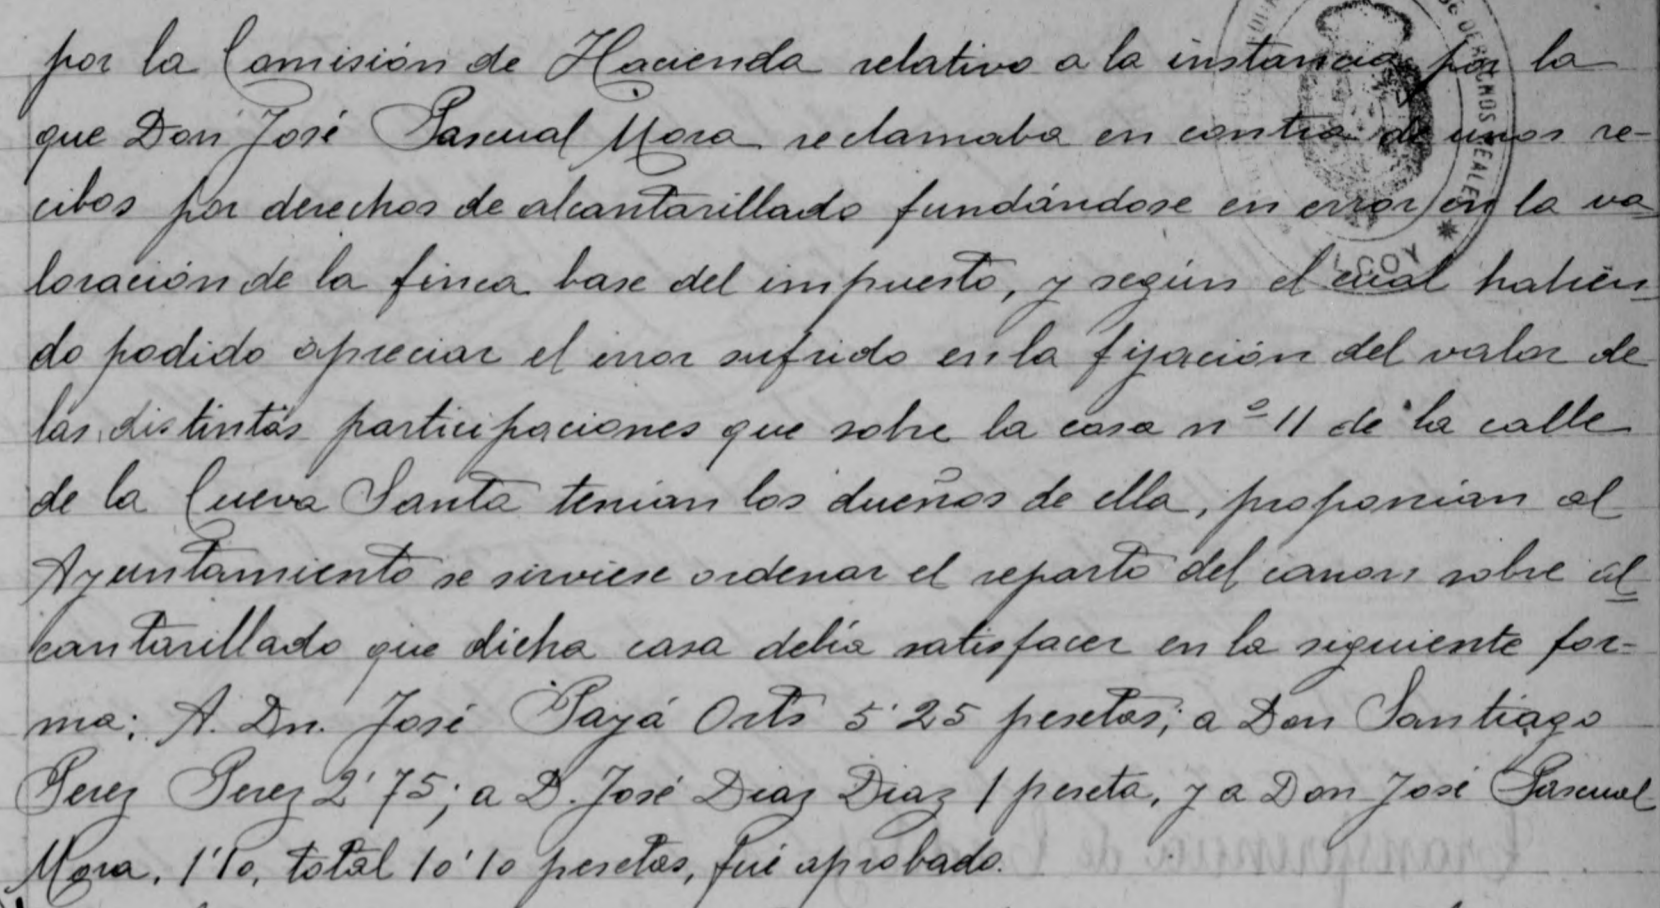 por la Comisión de Hacienda relativo a la instancia por la
que Don José Pascual Mora reclamaba en contra de unos re-
cibos por derechos de alcantarillado fundándose en error en la va
loración de la finca base del impuesto, y según el cual habien
do podido apreciar el error sufrido en la fijación del valor de
las distintas participaciones que sobre la casa nº 11 de la calle
de la Cueva Santa tenían los dueños de ella, proponían al
Ayuntamiento se sirviese ordenar el reparto del canon sobre al
cantarillado que dicha casa debía satisfacer en la siguiente for-
ma: A. Dn. José Payá Orts 5'25 pesetas; a Don Santiago
Perez Perez 2'75; a D. José Diaz Diaz 1 peseta, y a Don José Pascual
Mora, 1'10, total 10'10 pesetas, fué aprobado.
DERECHOS REALES
LCOY